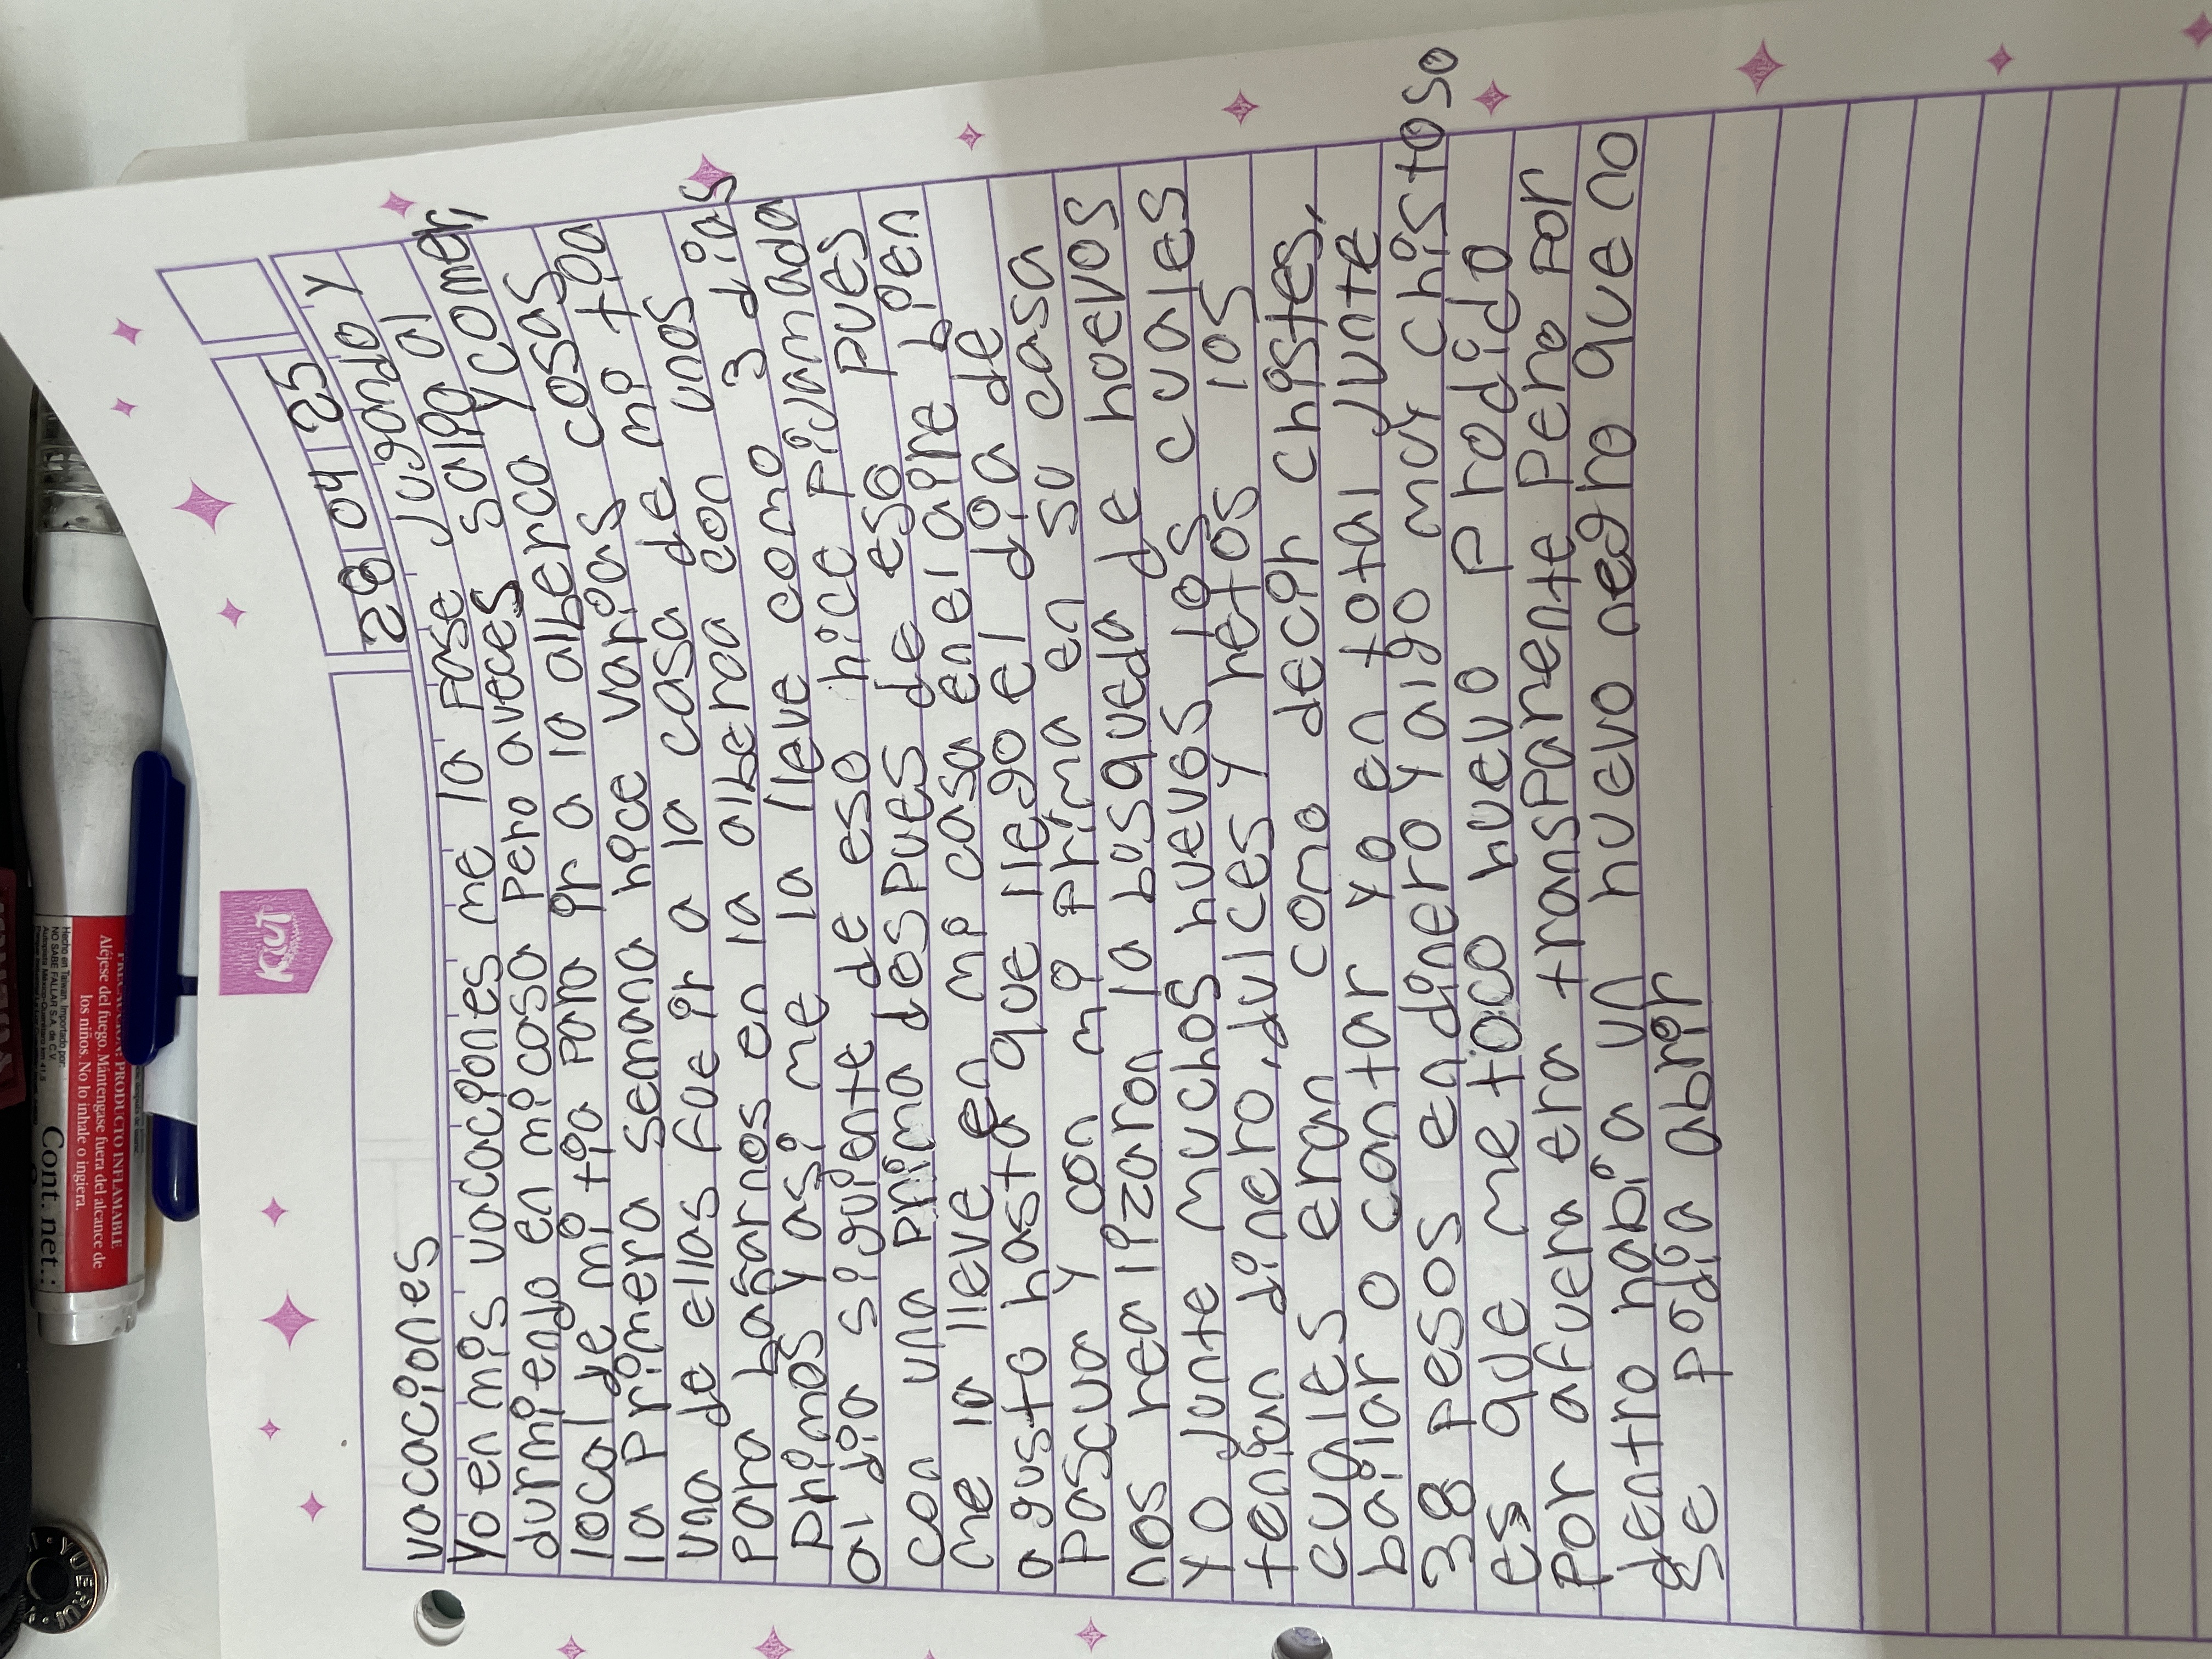 28 04 25
vacaciones
Yo en mis vacaciones me la pase Jugando y
durmiendo en mi casa Pero aveces salgo al
local de mi tia Para ir a la alberca y comer,
la primera semana hice varias cosas
una de ellas fue ir a la casa de mi tia
Para bañarnos en la alberca con unos
primos y asi me la lleve como 3 dias
al dia siguiente de eso hice Pijamada
con una prima despues de eso pues
me la lleve en mi casa en el aire bien
a gusto hasta que llego el dia de
Pascua y con mi prima en su casa
nos realizaron la busqueda de huevos
Yo Junte muchos huevos los cuales
tenian dinero, dulces y retos los
cuales eran como decir chistes,
bailar o cantar yo en total Junte
38 Pesos en dinero y algo muy chistoso
es que me toco huevo Prodido
Por afuera era transParente Pero Por
dentro habia un huevo negro que no
se podia abrir
KUT
PRODUCTO INFLAMABLE
Aléjese del fuego. Mántengase fuera del alcance de
los niños. No lo inhale o ingiera.
Cont. net.:
Hecho en Taiwan. Importado por:
NO SABE FALLAR S.A. de C.V.